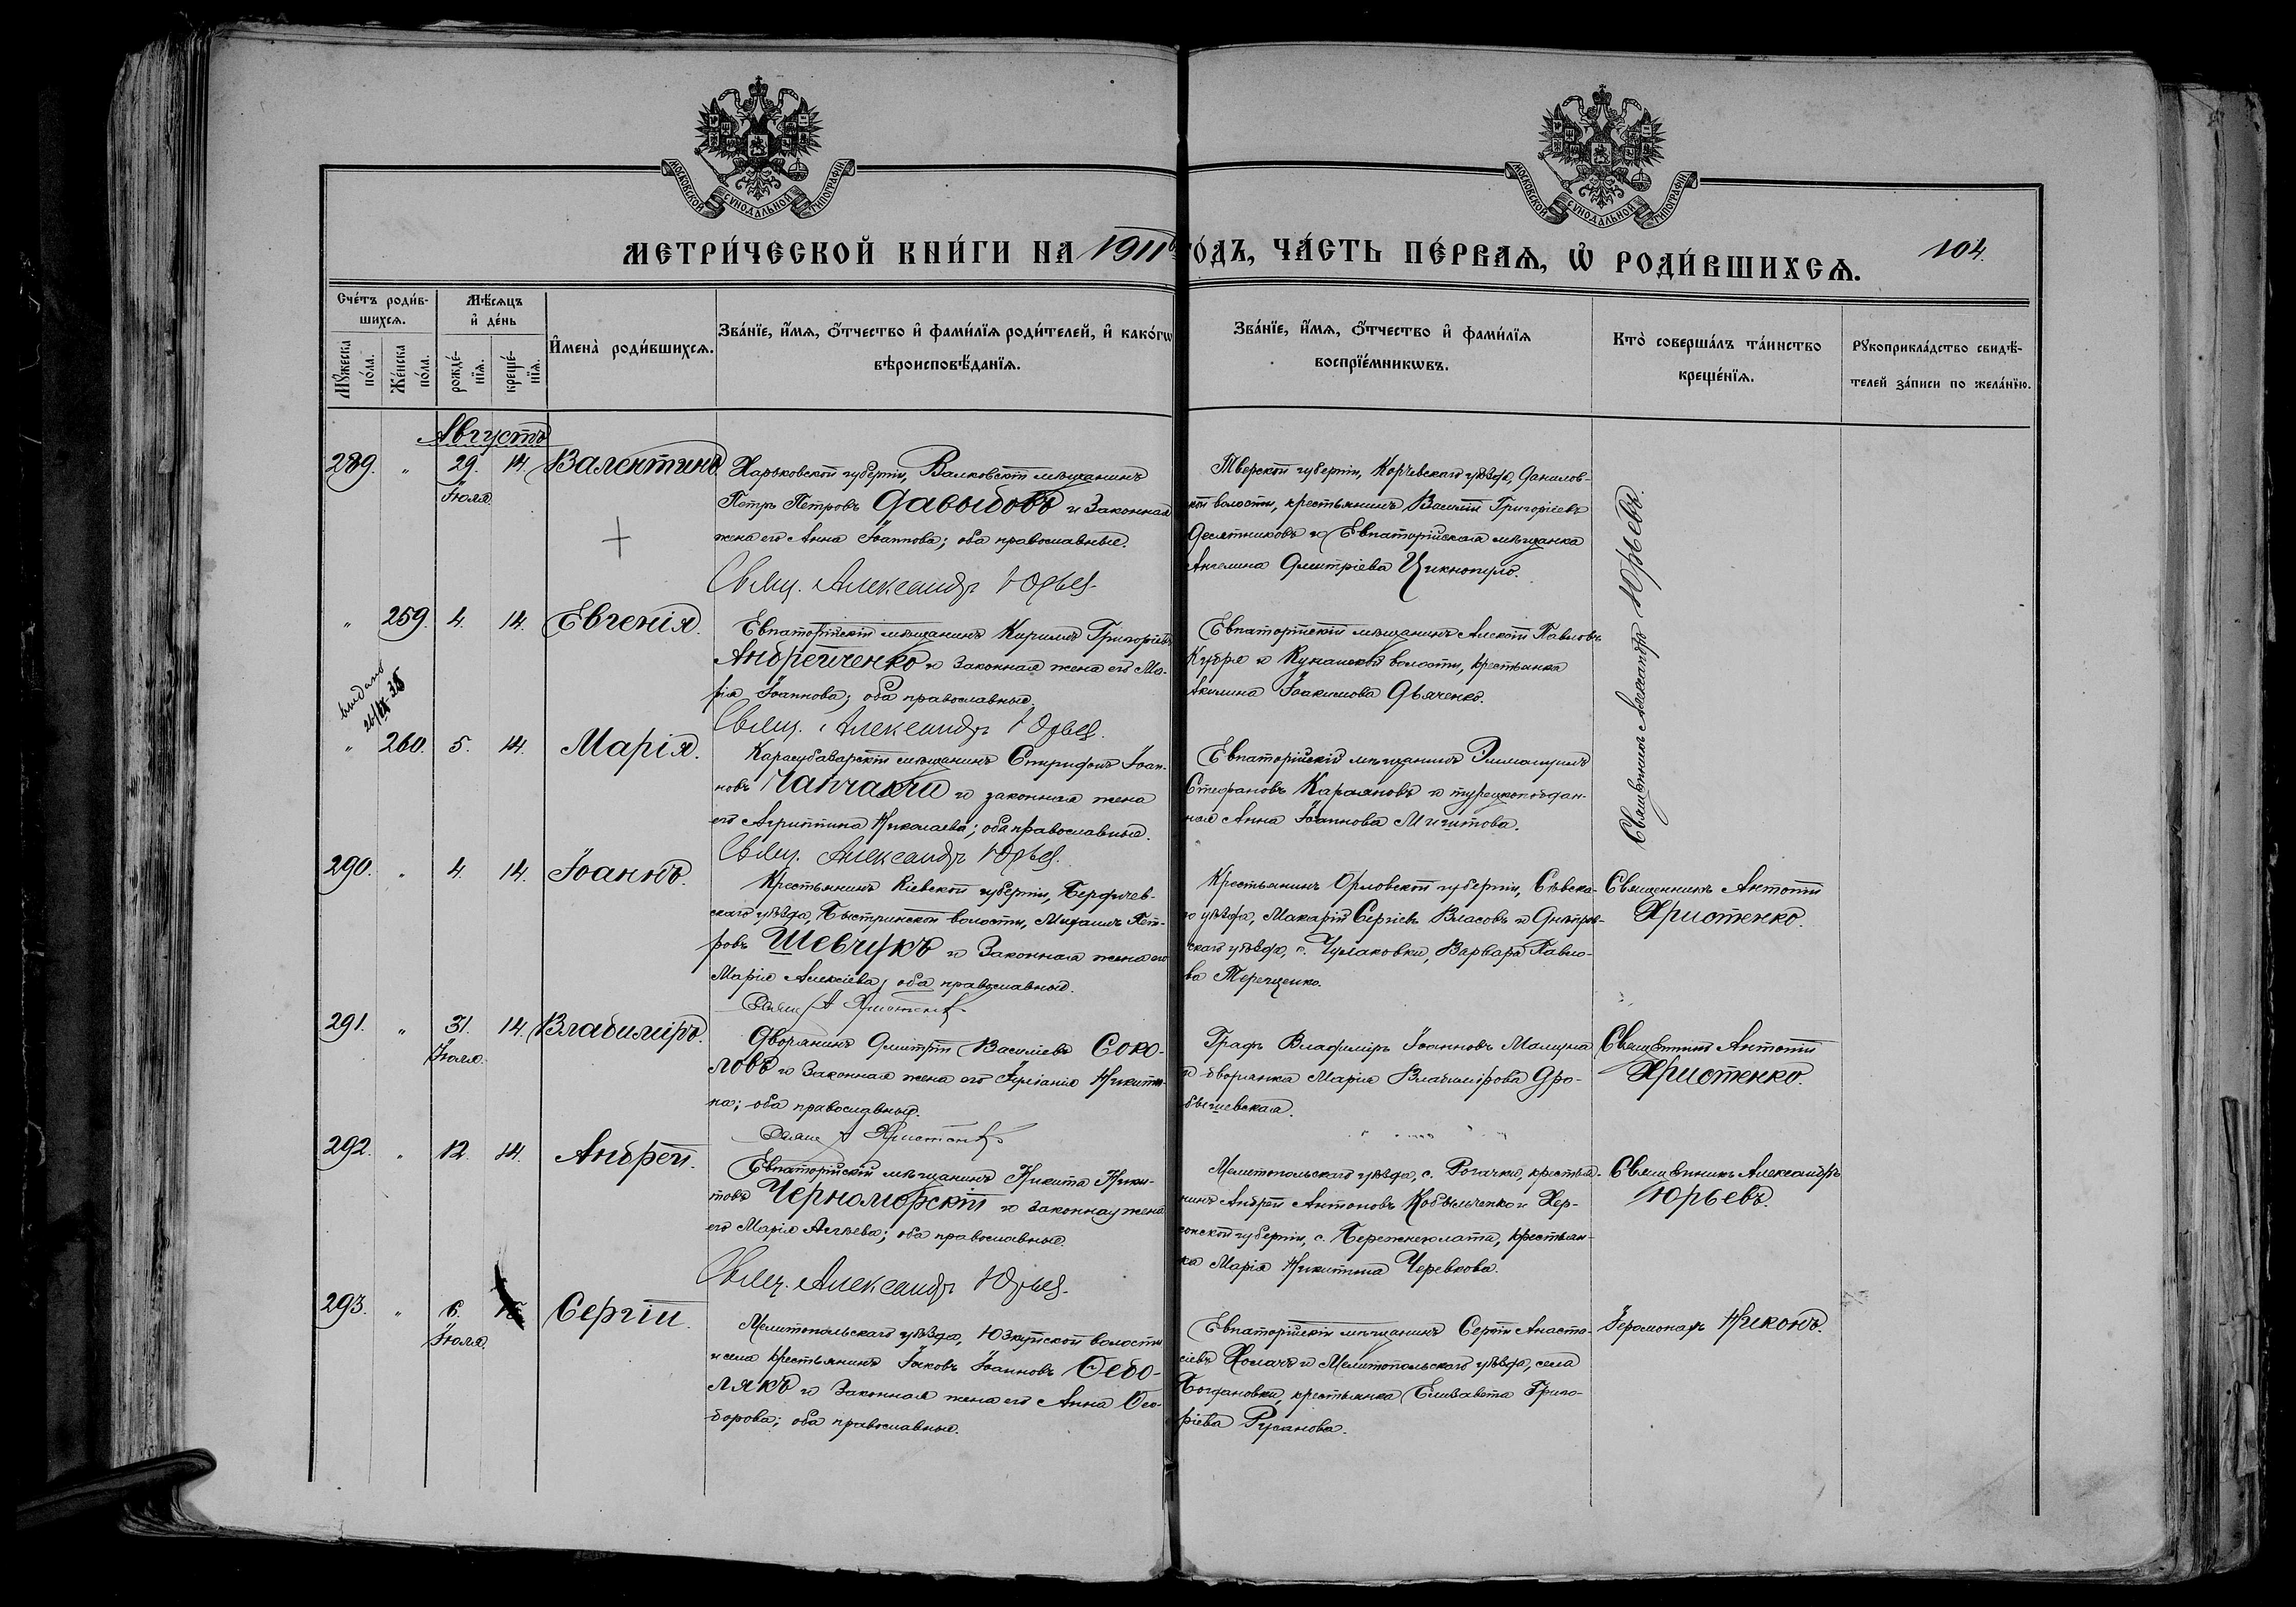 МОСКОВСКОЙ СѴНОДАЛЬНОЙ ТИПОГРАФІИ
МОСКОВСКОЙ СѴНОДАЛЬНОЙ ТИПОГРАФІИ
МЕТРИ́ЧЕСКОЙ КНИ́ГИ НА 1911й ГО́ДЪ, ЧА́СТЬ ПЕ́РВАѦ, Ѡ РОДИ́ВШИХСѦ.
104.
Сче́тъ роди́в-
шихсѧ.
Мѣ́сѧцъ
и҆ де́нь
Мꙋ́жеска
по́ла.
Же́нска
по́ла.
рожде́-
нїѧ.
креще́-
нїѧ.
И҆мена̀ роди́вшихсѧ.
Зва́нїе, и҆́мѧ, ѻ҆́тчество и҆ фами́лїѧ роди́телей, и҆ како́гѡ
вѣроисповѣ́данїѧ.
Зва́нїе, и҆́мѧ, ѻ҆́тчество и҆ фами́лїѧ
воспрїе́мникѡвъ.
Кто̀ соверша́лъ та́инство
креще́нїѧ.
Рꙋкоприкла́дство свидѣ́-
телей за́писи по жела́нїю.
Августъ
289. " 29. 14. Валентинъ
Іюля.
Харьковской губерніи, Валковскій мѣщанинъ
Петръ Петровъ Давыдовъ и законная
жена его Анна Іоаннова; оба православные.
Свящ. Александръ Юрьев
Тверской губерніи, Корчевскаго уѣзда, Данилов-
кой волости, крестьянинъ Василій Григоріевъ
Десятниковъ и Евпаторійская мѣщанка
Ангелина Димитріева
Священникъ Александръ Юрьевъ.
" 259. 4. 14. Евгенія.
Евпаторійскій мѣщанинъ Кириллъ Григоріевъ
Андрейченко и законная жена его Ма-
рія Іоаннова; оба православные.
Свящ. Александръ Юрьев.
Евпаторійскій мѣщанинъ Алексій Павловъ
Кудря и волости, крестьянка
Акилина Іоакимова Дьяченко.
видано
26/IX-35
" 260. 5. 14. Марія.
Карасубазарскій мѣщанинъ Спиридонъ Іоан-
новъ Чапчакчи и законная жена
его Агриппина Николаева; оба православные.
Свящ. Александръ Юрьев.
Евпаторійскій мѣщанинъ
Стефановъ Караяновъ и турецкоподдан-
ная Анна Іоаннова
290. " 4. 14. Іоаннъ.
Крестьянинъ Кіевской губерніи, Бердичев-
скаго уѣзда, Быстринской волости, Михаилъ Пет-
ровъ Шевчукъ и законная жена его
Марія Алексіева; оба православные.
Свящ А Христенко
Крестьянинъ Орловской губерніи, Сѣвска-
го уѣзда, Макарій Сергіевъ Власовъ и Днѣпров-
скаго уѣзда, с. Чулаковки, Варвара Павло-
ва Терещенко.
Священникъ Антоній
Христенко.
291. " 31. 14. Владиміръ.
Іюля.
Дворянинъ Димитрій Васильевъ Соко-
ловъ и законная жена его Іуліанія Никити-
на; оба православные.
Свящ А Христенко
Графъ Владиміръ Іоанновъ
и дворянка Марія Владимірова Дро-
бышевская.
Священникъ Антоній
Христенко.
292. " 12. 14. Андрей.
Евпаторійскій мѣщанинъ Никита Ники-
товъ Черноморскій и законная жена
его Марія Агѣева; оба православные.
Свящ. Александръ Юрьев.
Мелитопольскаго уѣзда, с. Рогачка, крестья-
нинъ Андрей Антоновъ Кобыльченко и Хер-
сонской губерніи, с. крестьян-
ка Марія Никитина Черевкова.
Священникъ Александръ
Юрьевъ.
293. " 6. 15. Сергій.
Іюля.
Мелитопольскаго уѣзда, Юзкуйской волости
и села крестьянинъ Іаковъ Іоанновъ Ѳебо-
лякъ и законная жена его Анна Ѳео-
дорова; оба православные.
Евпаторійскій мѣщанинъ Сергій Анаста-
сіевъ и Мелитопольскаго уѣзда, села
Богдановки, крестьянка Елизавета Григо-
ріева Русанова.
Іеромонахъ Никонъ.